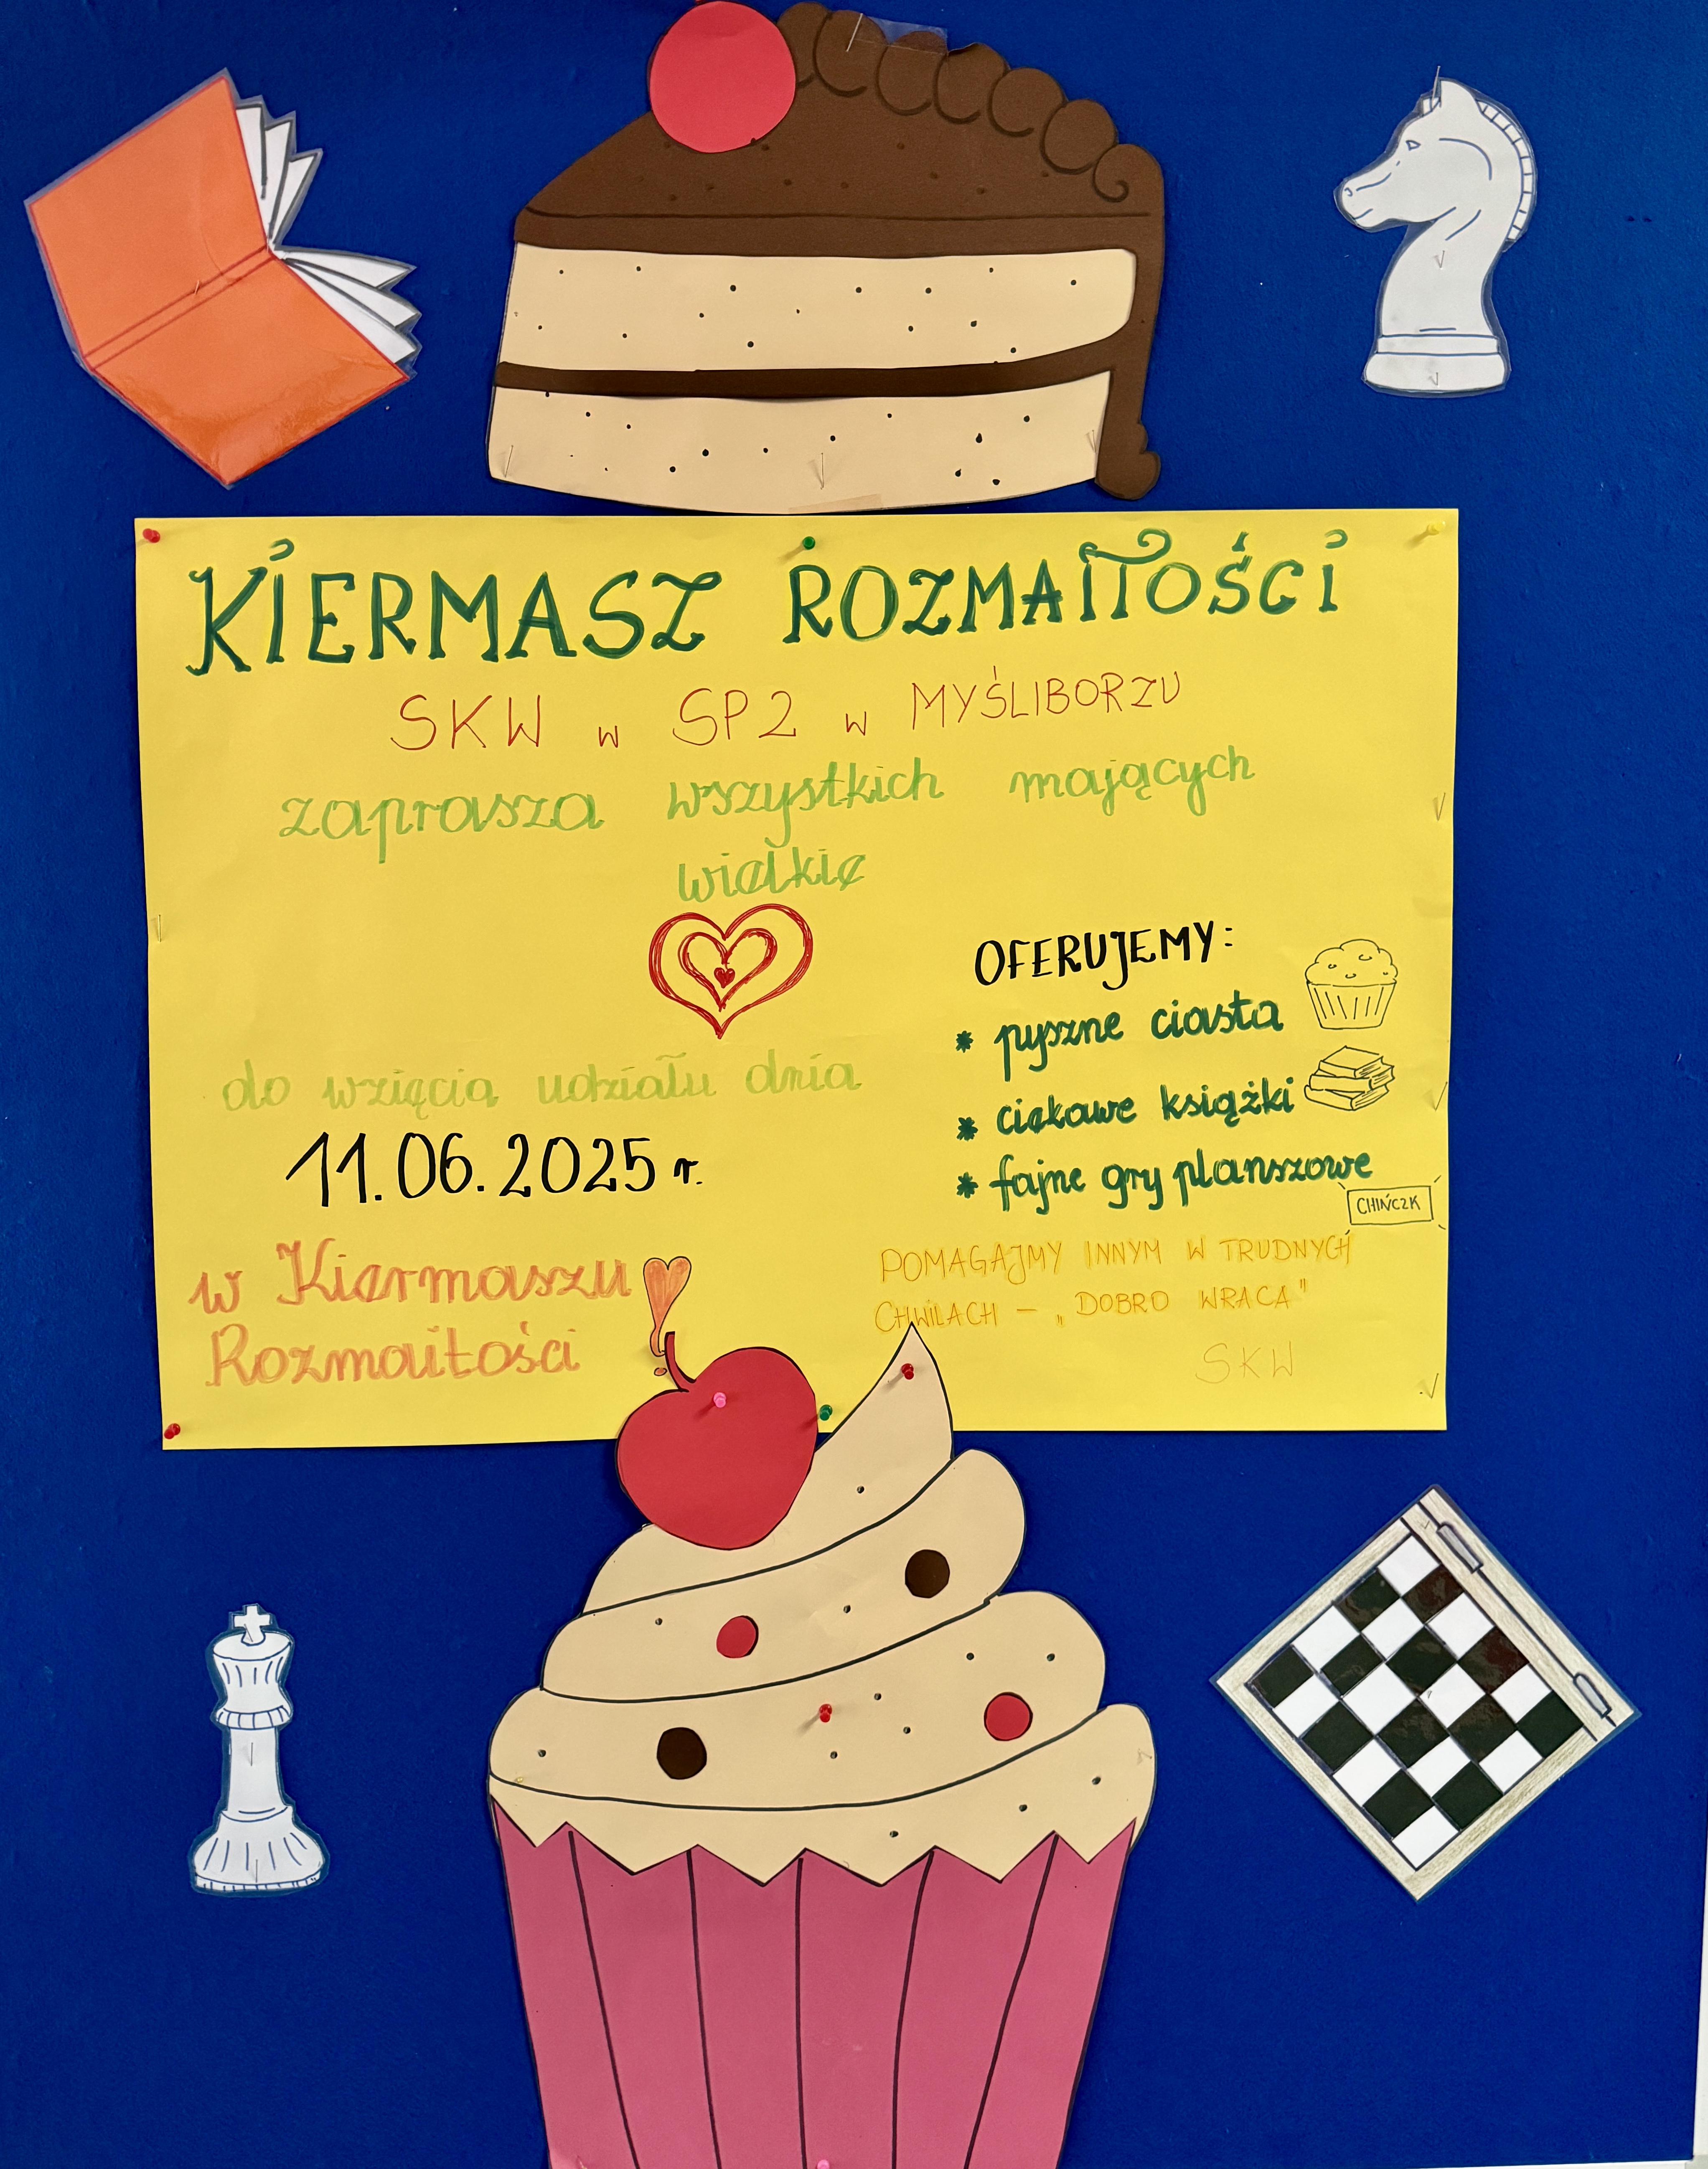 KIERMASZ ROZMAITOŚCI
SKW w SP2 w MYŚLIBORZU
zaprasza wszystkich mających
wielkie
do wzięcia udziału dnia
11.06.2025 r.
w Kiermaszu
Rozmaitości
OFERUJEMY:
* pyszne ciasta
* ciekawe książki
* fajne gry planszowe
CHIŃCZK
POMAGAJMY INNYM W TRUDNYCH
CHWILACH – „DOBRO WRACA"
SKW